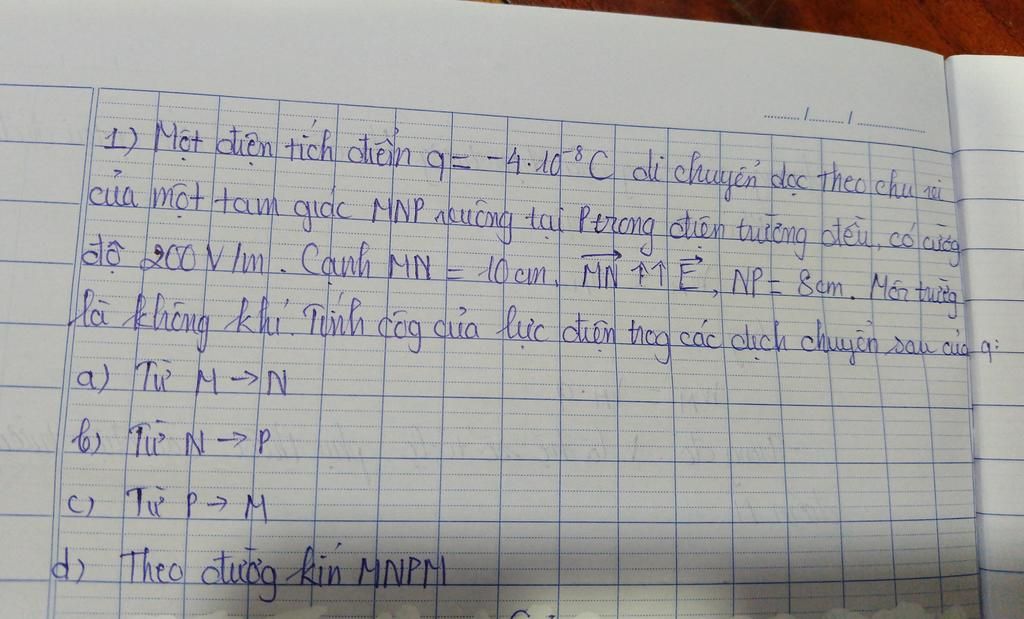 ...../...../.............
1) Một điện tích điểm q = -4.10⁻⁸C di chuyển dọc theo chu vi
của một tam giác MNP vuông tại P trong điện trường đều, có cường
độ 200 V/m. Cạnh MN = 10 cm, MN→ ↑↑ E→, NP = 8 cm. Môi trường
là không khí. Tính công của lực điện trog các dịch chuyển sau của q:
a) Từ M → N
b) Từ N → P
c) Từ P → M
d) Theo đường kín MNPM